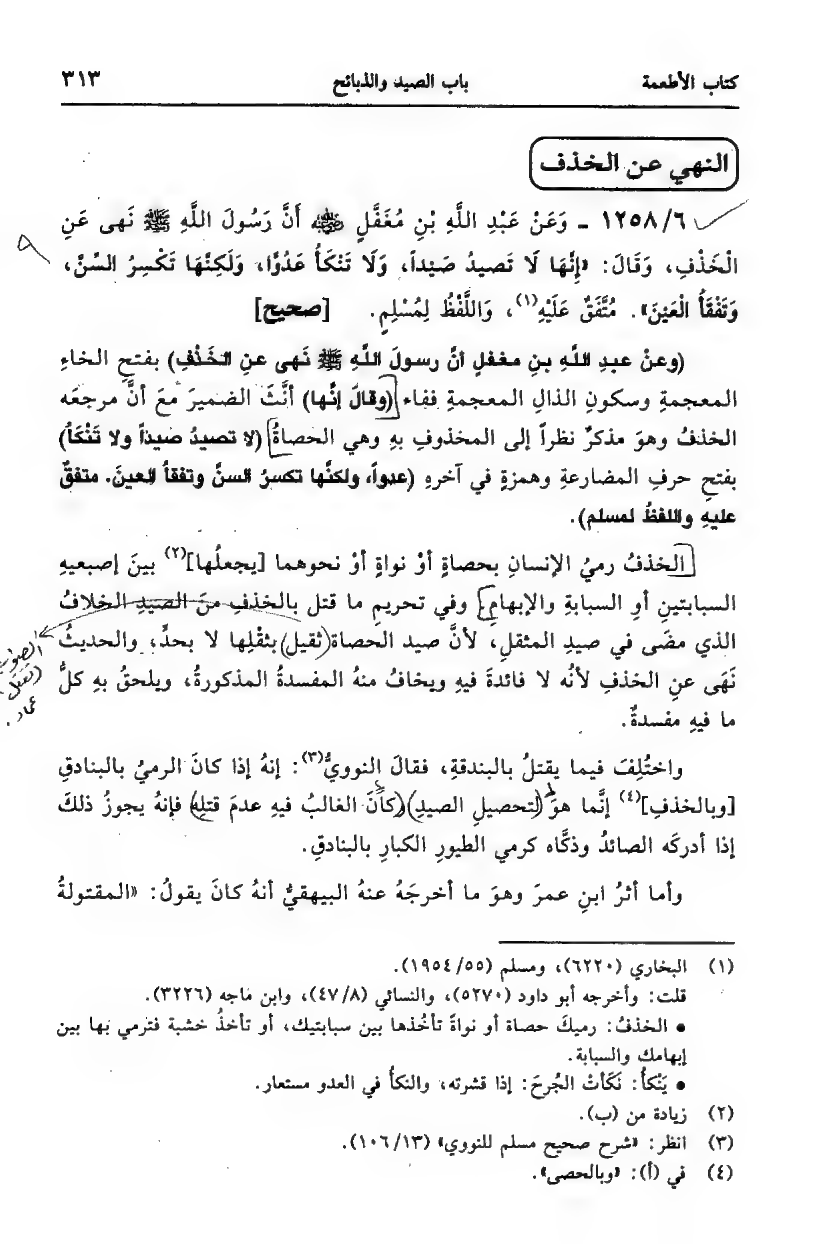 كتاب الأطعمة باب الصيد والذبائح ٣١٣
النهي عن الخذف
١٢٥٨/٦ - وَعَنْ عَبْدِ اللَّهِ بْنِ مُغَفَّلٍ رضي الله عنه أَنَّ رَسُولَ اللَّهِ ﷺ نَهى عَنِ
الْخَذْفِ، وَقَالَ: «إِنَّهَا لَا تَصيدُ صَيْداً، وَلَا تَنْكَأُ عَدُوًّا، وَلَكِنَّهَا تَكْسِرُ السِّنَّ،
وَتَفْقَأُ الْعَيْنَ». مُتَّفَقٌ عَلَيْهِ(١)، وَاللَّفْظُ لِمُسْلِمٍ. [صحيح]
(وعنْ عبدِ اللَّهِ بنِ مغفلٍ أنَّ رسولَ اللَّهِ ﷺ نَهى عنِ الخَذْفِ) بفتحِ الخاءِ
المعجمةِ وسكونِ الذالِ المعجمةِ ففاء (وقالَ إنَّها) أنَّثَ الضميرَ معَ أنَّ مرجعَه
الخذفُ وهوَ مذكرٌ نظراً إلى المخذوفِ بهِ وهي الحصاةُ (لا تصيدُ صيداً ولا تَنْكَأُ)
بفتحِ حرفِ المضارعةِ وهمزةٍ في آخرهِ (عدواً، ولكنَّها تكسرُ السنَّ وتفقأُ العينَ. متفقٌ
عليهِ واللفظُ لمسلم).
الخذفُ رميُ الإنسانِ بحصاةٍ أوْ نواةٍ أوْ نحوهما [يجعلُها](٢) بينَ إصبعيهِ
السبابتينِ أوِ السبابةِ والإبهامِ، وفي تحريمِ ما قتل بالخذفِ منَ الصيدِ الخلافُ
الذي مضَى في صيدِ المثقلِ، لأنَّ صيد الحصاة (ثقيل) بثقْلِها لا بحدٍّ، والحديثُ
نَهَى عنِ الخذفِ لأنُه لا فائدةَ فيهِ ويخافُ منهُ المفسدةُ المذكورةُ، ويلحقُ بهِ كلُّ
ما فيهِ مفسدةٌ.
واختُلِفَ فيما يقتلُ بالبندقةِ، فقالَ النوويُّ(٣): إنهُ إذا كانَ الرميُ بالبنادقِ
[وبالخذفِ](٤) إنَّما هوَ (لتحصيلِ الصيدِ) (كانَ الغالبُ فيهِ عدمَ قتلِهِ) فإنهُ يجوزُ ذلكَ
إذا أدركَه الصائدُ وذكَّاه كرمي الطيورِ الكبارِ بالبنادقِ.
وأما أثرُ ابنِ عمرَ وهوَ ما أخرجَهُ عنهُ البيهقيُّ أنهُ كانَ يقولُ: «المقتولةُ
(١) البخاري (٦٢٢٠)، ومسلم (١٩٥٤/٥٥).
قلت: وأخرجه أبو داود (٥٢٧٠)، والنسائي (٤٧/٨)، وابن ماجه (٣٢٢٦).
• الخذفُ: رميكَ حصاة أو نواةً تأخُذها بين سبابتيك، أو تأخذُ خشبة فترمي بها بين
إبهامك والسبابة.
• يَنْكأُ: نَكَأتْ الجُرحَ: إذا قشرته، والنكأُ في العدو مستعار.
(٢) زيادة من (ب).
(٣) انظر: «شرح صحيح مسلم للنووي» (١٠٦/١٣).
(٤) في (أ): «وبالحصى».